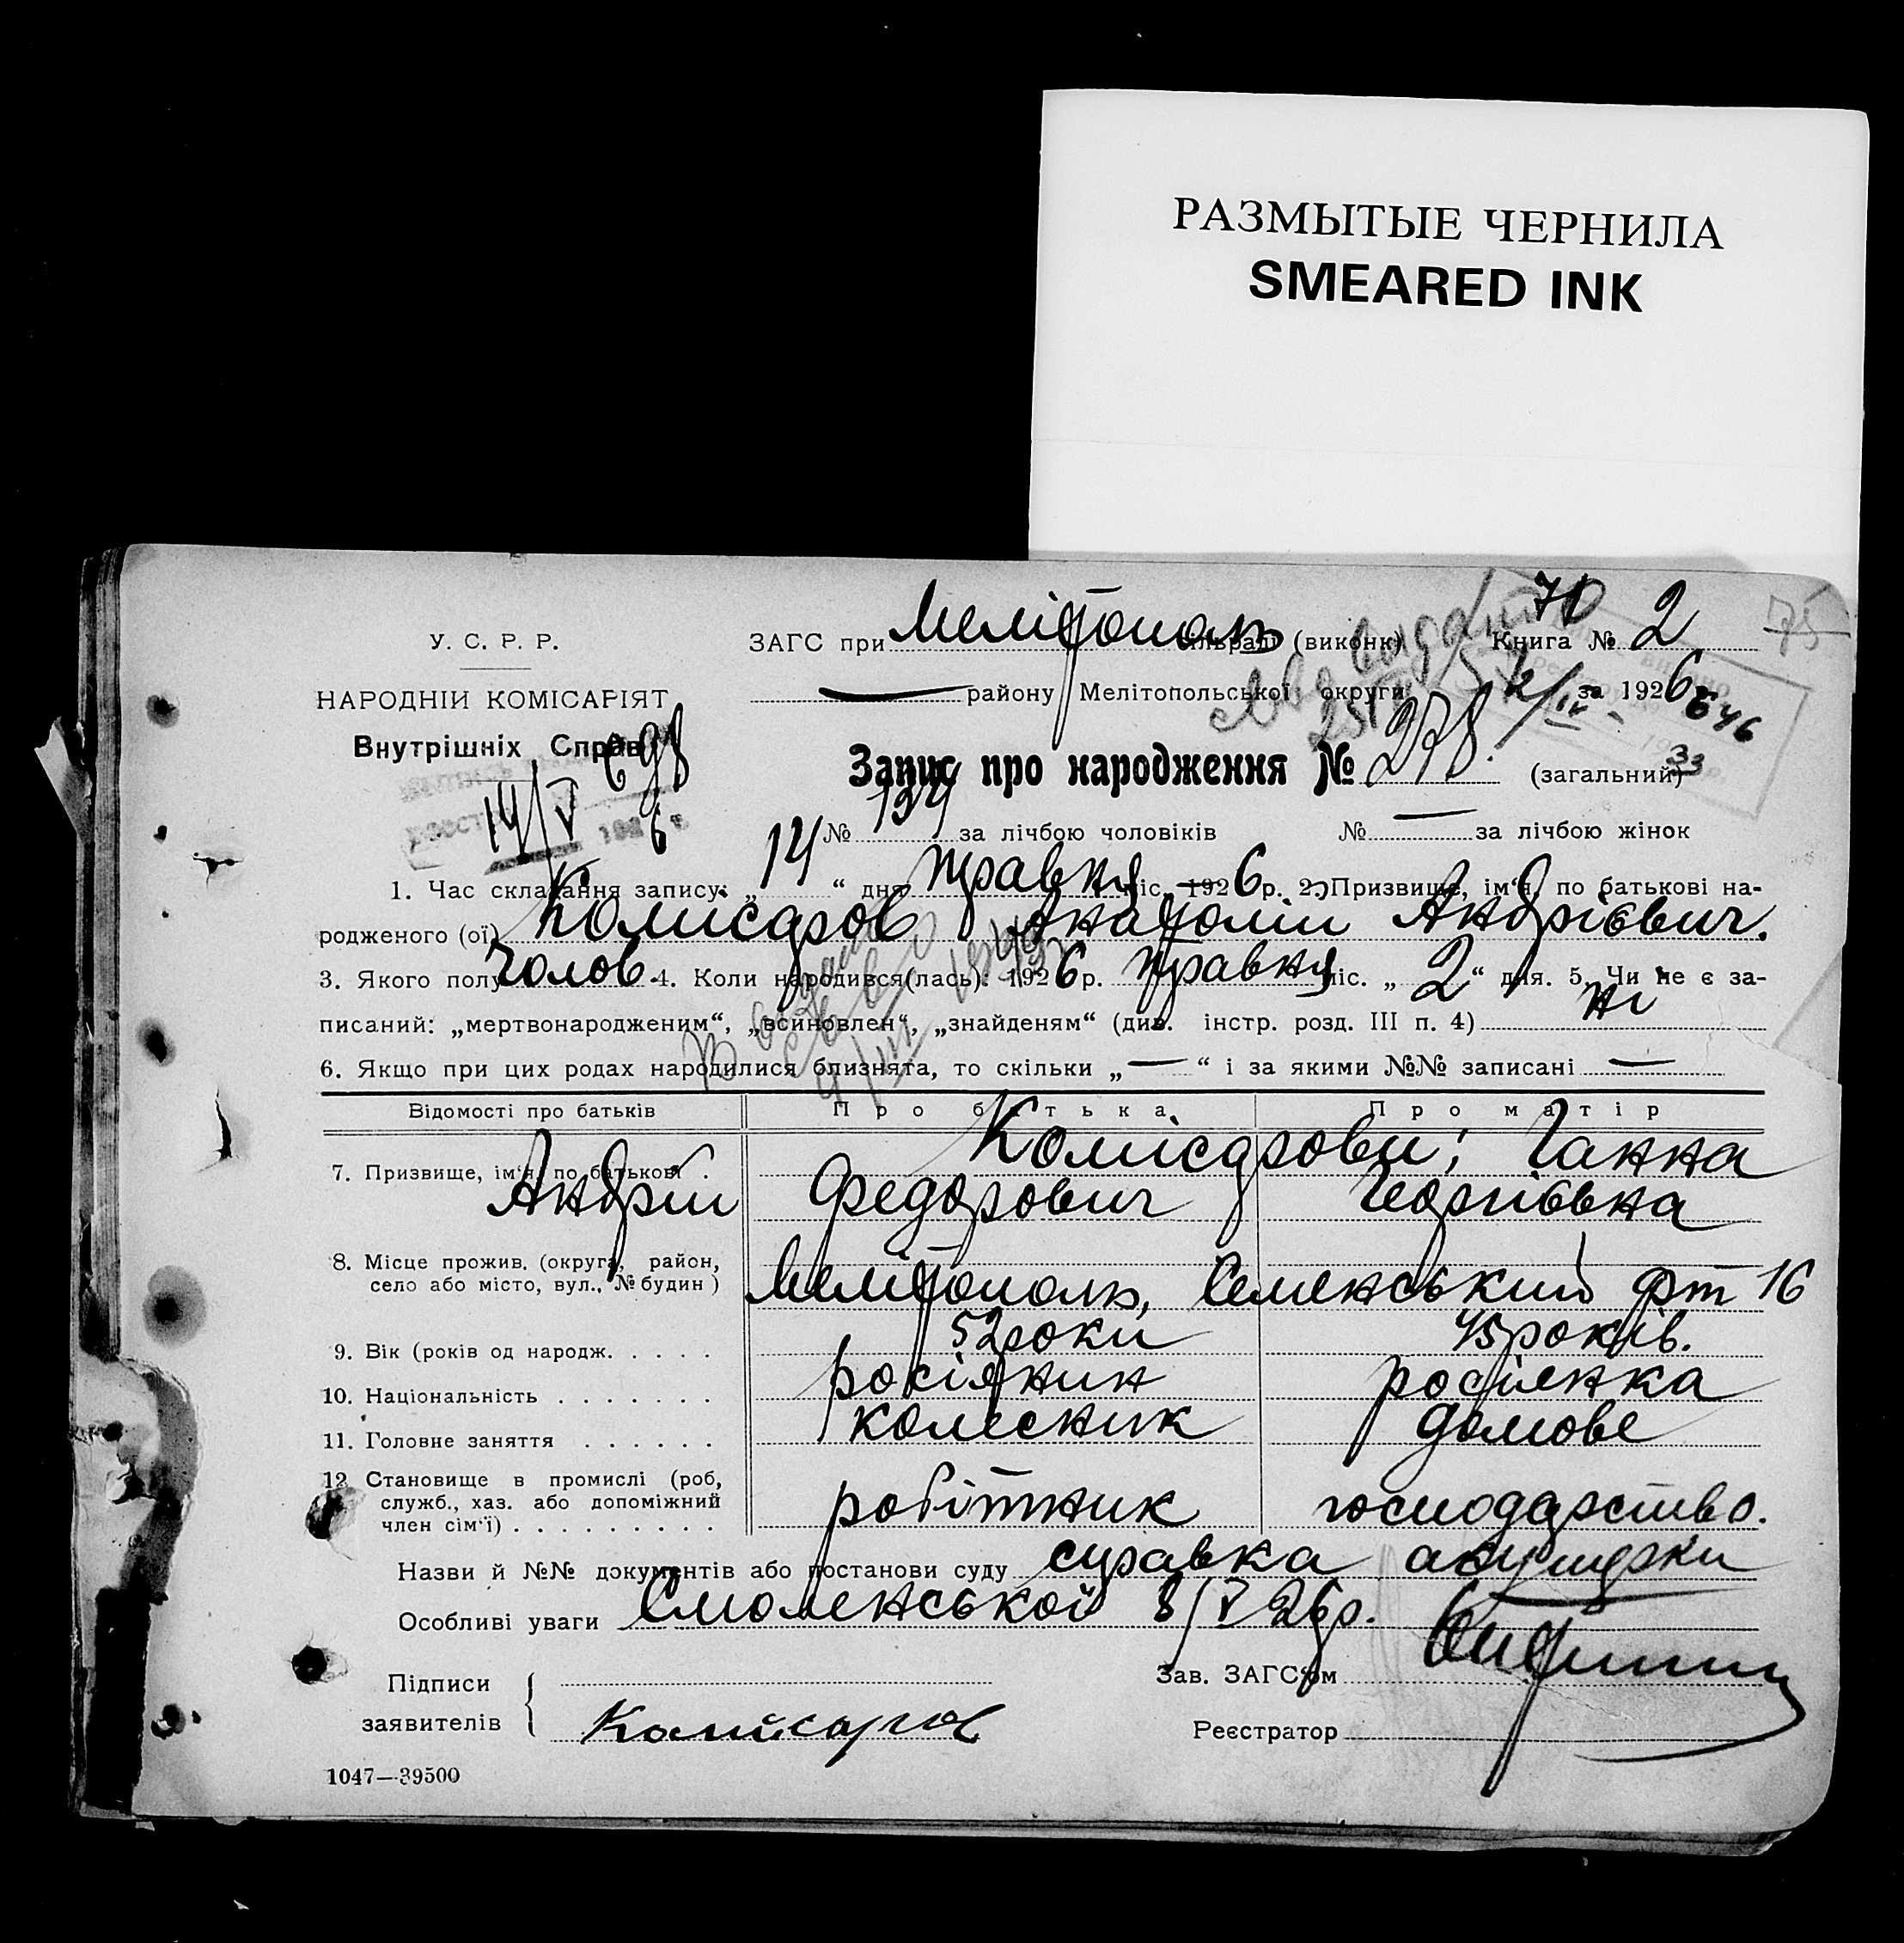 РАЗМЫТЫЕ ЧЕРНИЛА
SMEARED INK
70
75
У. С. Р. Р.
ЗАГС при Мелітополь сільраді (виконк) Книга № 2
НАРОДНІЙ КОМІСАРІЯТ
району Мелітопольської округи за 1926
Внутрішніх Справ
698
14/V 1926 р.
646
33
Запис про народження № 278. (загальний)
№ 134 за лічбою чоловіків № — за лічбою жінок
1. Час складання запису: „14“ дня травня міс. 1926 р. 2. Призвище, ім'я, по батькові на-
родженого (ої) Комісаров Анатолій Андрієвич.
3. Якого полу чолов. 4. Коли народився(лась): 1926 р. травня міс. „2“ дня. 5. Чи не є за-
писаний: „мертвонародженим“, „всиновлен“, „знайденям“ (див. інстр. розд. III п. 4) ні
6. Якщо при цих родах народилися близнята, то скільки „—“ і за якими №№ записані —
Відомості про батьків Про батька Про матір
7. Призвище, ім'я, по батькові . Комісарови; Ганна
Андрій Федорович Георгіївна
8. Місце прожив. (округа, район,
село або місто, вул., № будин) Мелітополь, Семенський 16
9. Вік (років од народж. . . . . 52 роки 45 років.
10. Національність . . . . . . . росіянин росіянка
11. Головне заняття . . . . . . колесник домове
12. Становище в промислі (роб,
служб., хаз. або допоміжний
член сім'ї) . . . . . . . . . робітник господарство.
Назви й №№ документів або постанови суду справка акушерки
Особливі уваги Смоленської 8/V 26 р.
Підписи
заявителів Комисаров
Зав. ЗАГС'ом
Реєстратор
1047—39500